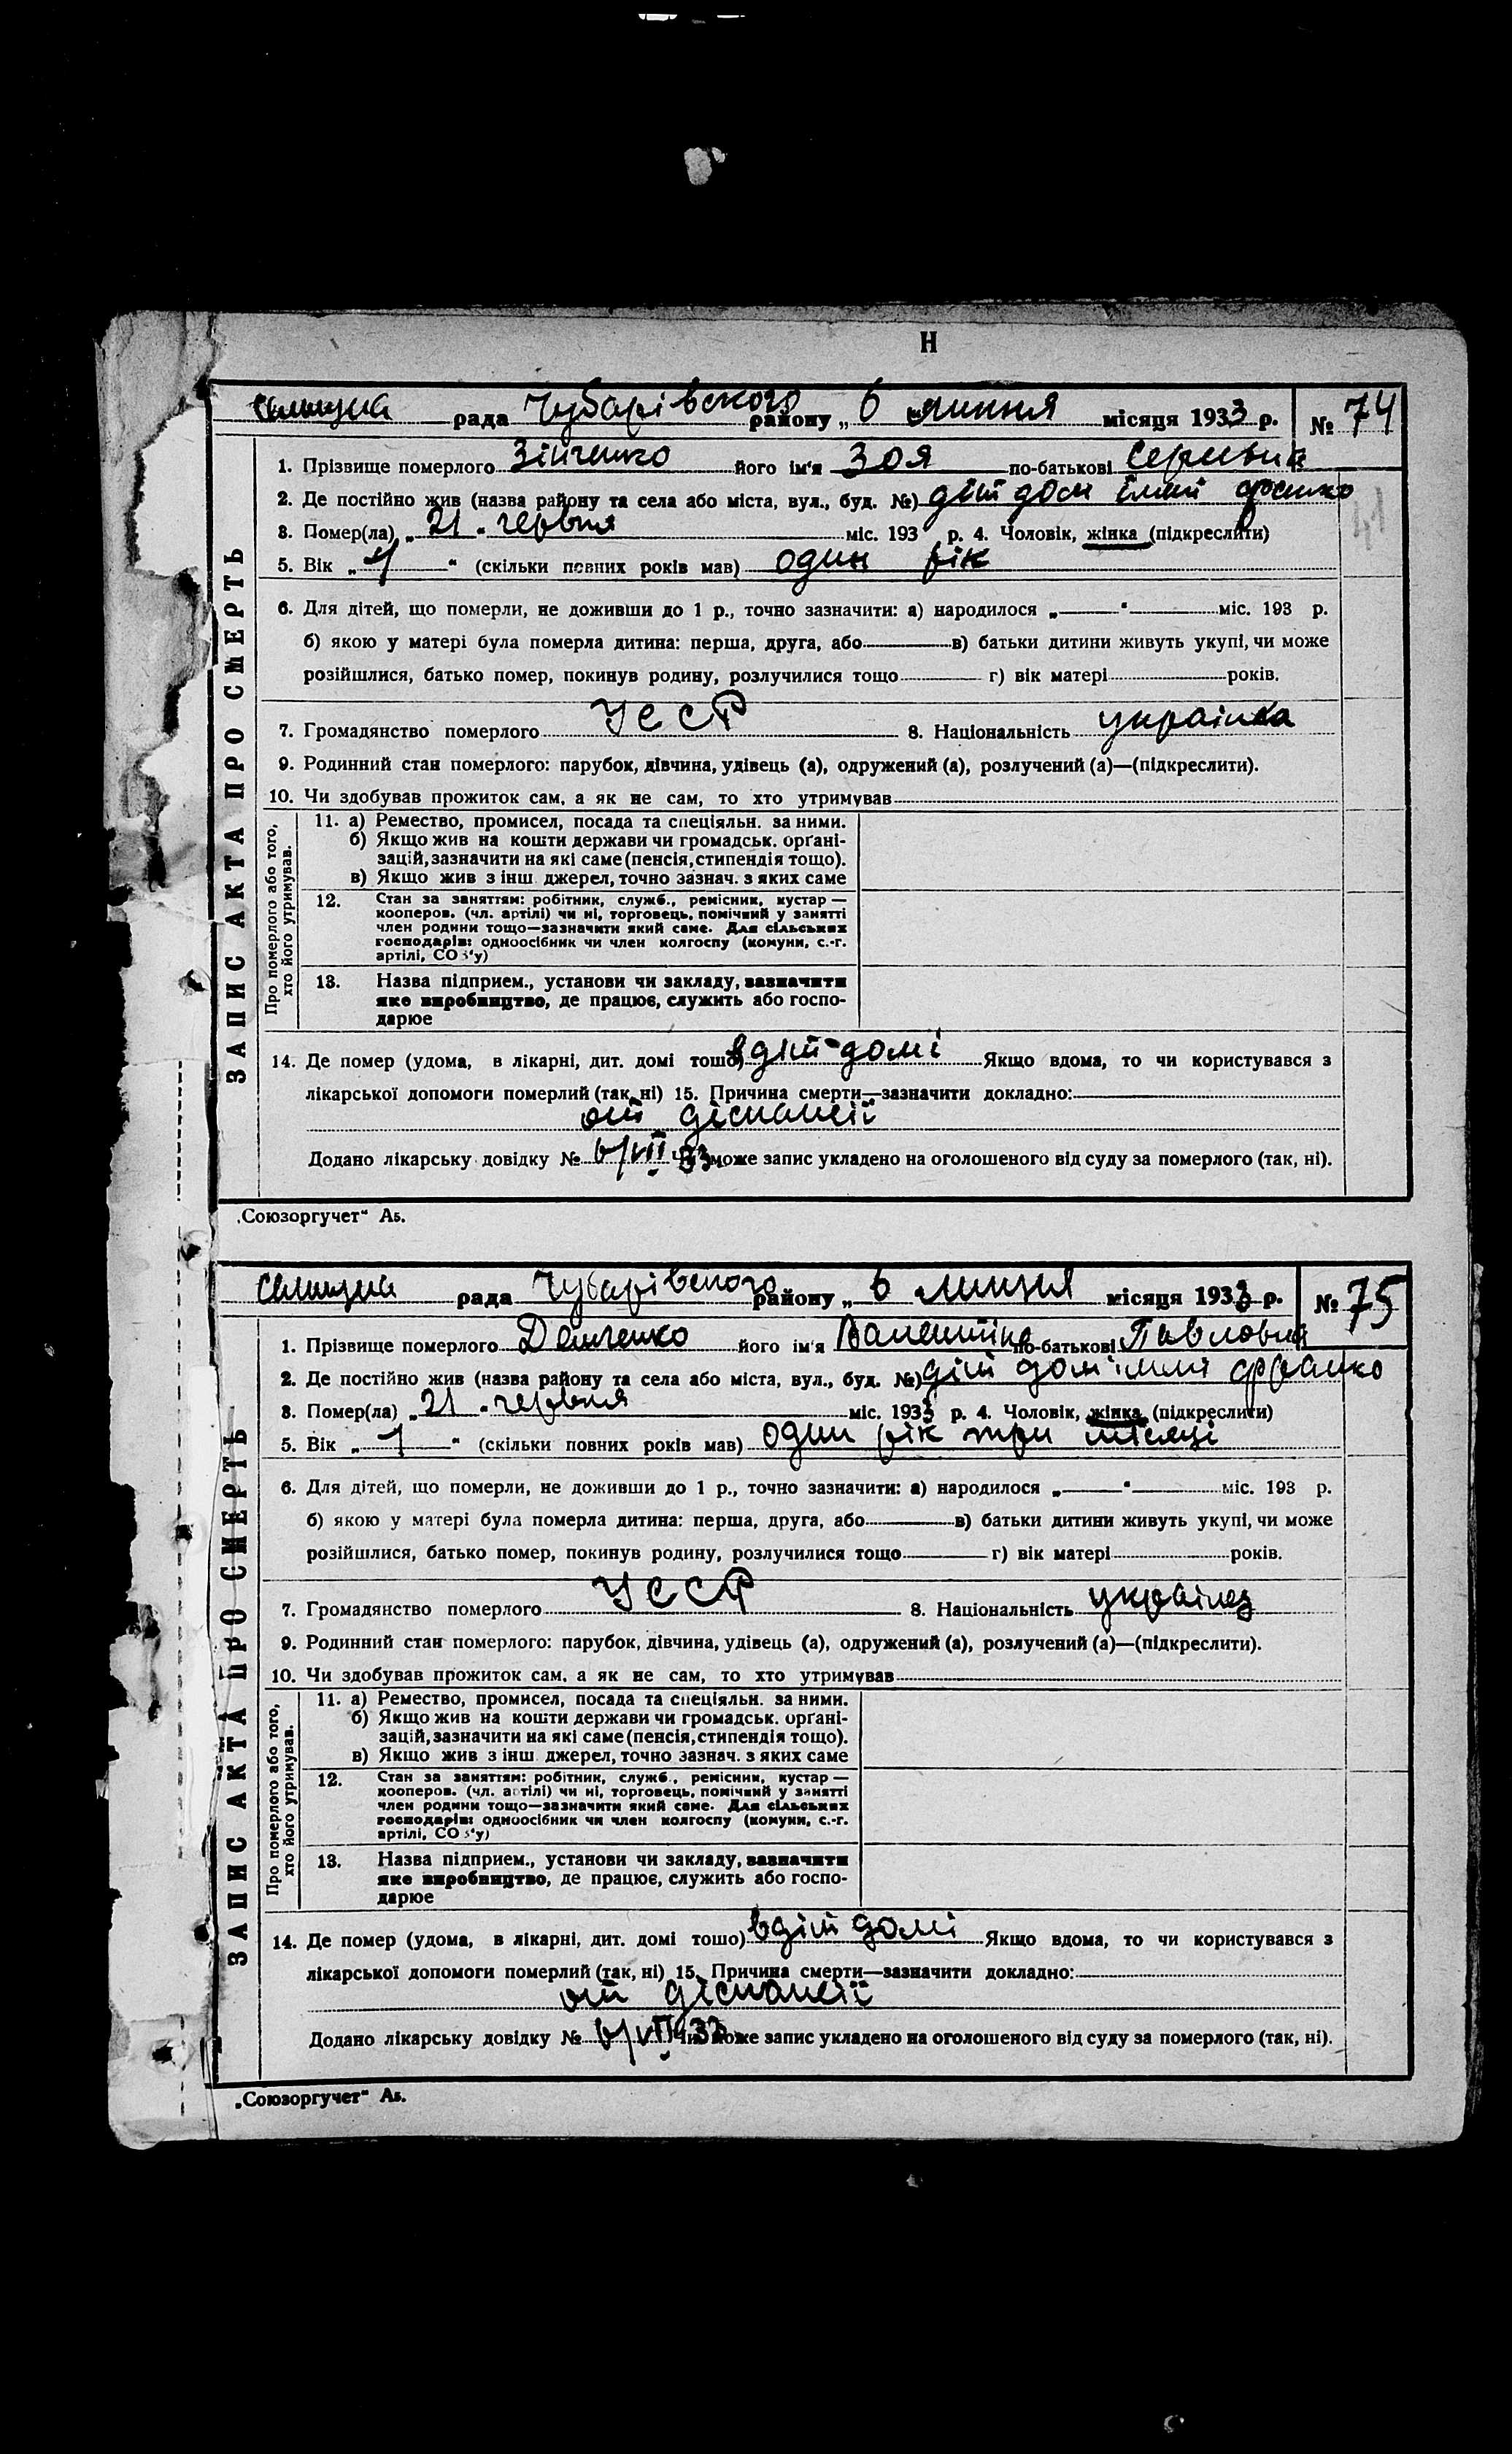 Н
Селищна рада Чубарівского району „ 6 липня місяця 1933 р. № 74
1. Прізвище померлого Зінченко його ім'я Зоя по-батькові
2. Де постійно жив (назва району та села або міста, вул., буд. №) діт дом імни франко
41
3. Помер(ла) „ 21 " червня міс. 193 р. 4. Чоловік, жінка (підкреслити)
5. Вік „ 1 " (скільки повних років мав) один рік
6. Для дітей, що померли, не доживши до 1 р., точно зазначити: а) народилося „ " міс. 193 р.
б) якою у матері була померла дитина: перша, друга, або в) батьки дитини живуть укупі, чи може
розійшлися, батько помер, покинув родину, розлучилися тощо г) вік матері років.
7. Громадянство померлого УССР 8. Національність українка
9. Родинний стан померлого: парубок, дівчина, удівець (а), одружений (а), розлучений (а)—(підкреслити).
10. Чи здобував прожиток сам, а як не сам, то хто утримував
ЗАПИС АКТА ПРО СМЕРТЬ
Про померлого або того,
хто його утримував.
11. а) Ремество, промисел, посада та спеціяльн. за ними.
б) Якщо жив на кошти держави чи громадськ. орґані-
зацій, зазначити на які саме (пенсія, стипендія тощо).
в) Якщо жив з інш джерел, точно зазнач. з яких саме
12. Стан за заняттям: робітник, служб., ремісник, кустар —
кооперов. (чл. артілі) чи ні, торговець, помічний у занятті
член родини тощо—зазначити який саме. Для сільських
господарів: одноосібник чи член колгоспу (комуни, с.-г.
артілі, СОЗ'у)
13. Назва підприєм., установи чи закладу, зазначити
яке виробництво, де працює, служить або госпо-
дарює
14. Де помер (удома, в лікарні, дит. домі тощо) в діт-домі Якщо вдома, то чи користувався з
лікарської допомоги померлий (так, ні) 15. Причина смерти—зазначити докладно:
от діспапсії
Додано лікарську довідку № 6/VII 33 Чи може запис укладено на оголошеного від суду за померлого (так, ні).
„Союзоргучет" Аб.
Селищна рада Чубарівского району „ 6 липня місяця 1933 р. № 75
1. Прізвище померлого Демченко його ім'я Валентіна по-батькові Павловна
2. Де постійно жив (назва району та села або міста, вул., буд. №) діт дом імні франко
3. Помер(ла) „ 21 " червня міс. 1933 р. 4. Чоловік, жінка (підкреслити)
5. Вік „ 1 " (скільки повних років мав) один рік три місяці
6. Для дітей, що померли, не доживши до 1 р., точно зазначити: а) народилося „ " міс. 193 р.
б) якою у матері була померла дитина: перша, друга, або в) батьки дитини живуть укупі, чи може
розійшлися, батько помер, покинув родину, розлучилися тощо г) вік матері років.
7. Громадянство померлого УССР 8. Національність українец
9. Родинний стан померлого: парубок, дівчина, удівець (а), одружений (а), розлучений (а)—(підкреслити).
10. Чи здобував прожиток сам, а як не сам, то хто утримував
ЗАПИС АКТА ПРО СМЕРТЬ
Про померлого або того,
хто його утримував.
11. а) Ремество, промисел, посада та спеціяльн. за ними.
б) Якщо жив на кошти держави чи громадськ. орґані-
зацій, зазначити на які саме (пенсія, стипендія тощо).
в) Якщо жив з інш джерел, точно зазнач. з яких саме
12. Стан за заняттям: робітник, служб., ремісник, кустар —
кооперов. (чл. артілі) чи ні, торговець, помічний у занятті
член родини тощо—зазначити який саме. Для сільських
господарів: одноосібник чи член колгоспу (комуни, с.-г.
артілі, СОЗ'у)
13. Назва підприєм., установи чи закладу, зазначити
яке виробництво, де працює, служить або госпо-
дарює
14. Де помер (удома, в лікарні, дит. домі тошо) в діт домі Якщо вдома, то чи користувався з
лікарської допомоги померлий (так, ні) 15. Причина смерти—зазначити докладно:
от діспапсії
Додано лікарську довідку № 6/VII 33 Чи може запис укладено на оголошеного від суду за померлого (так, ні).
„Союзоргучет" Аб.